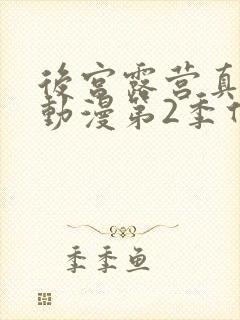 後宮露营真
動漫第2季
季季鱼